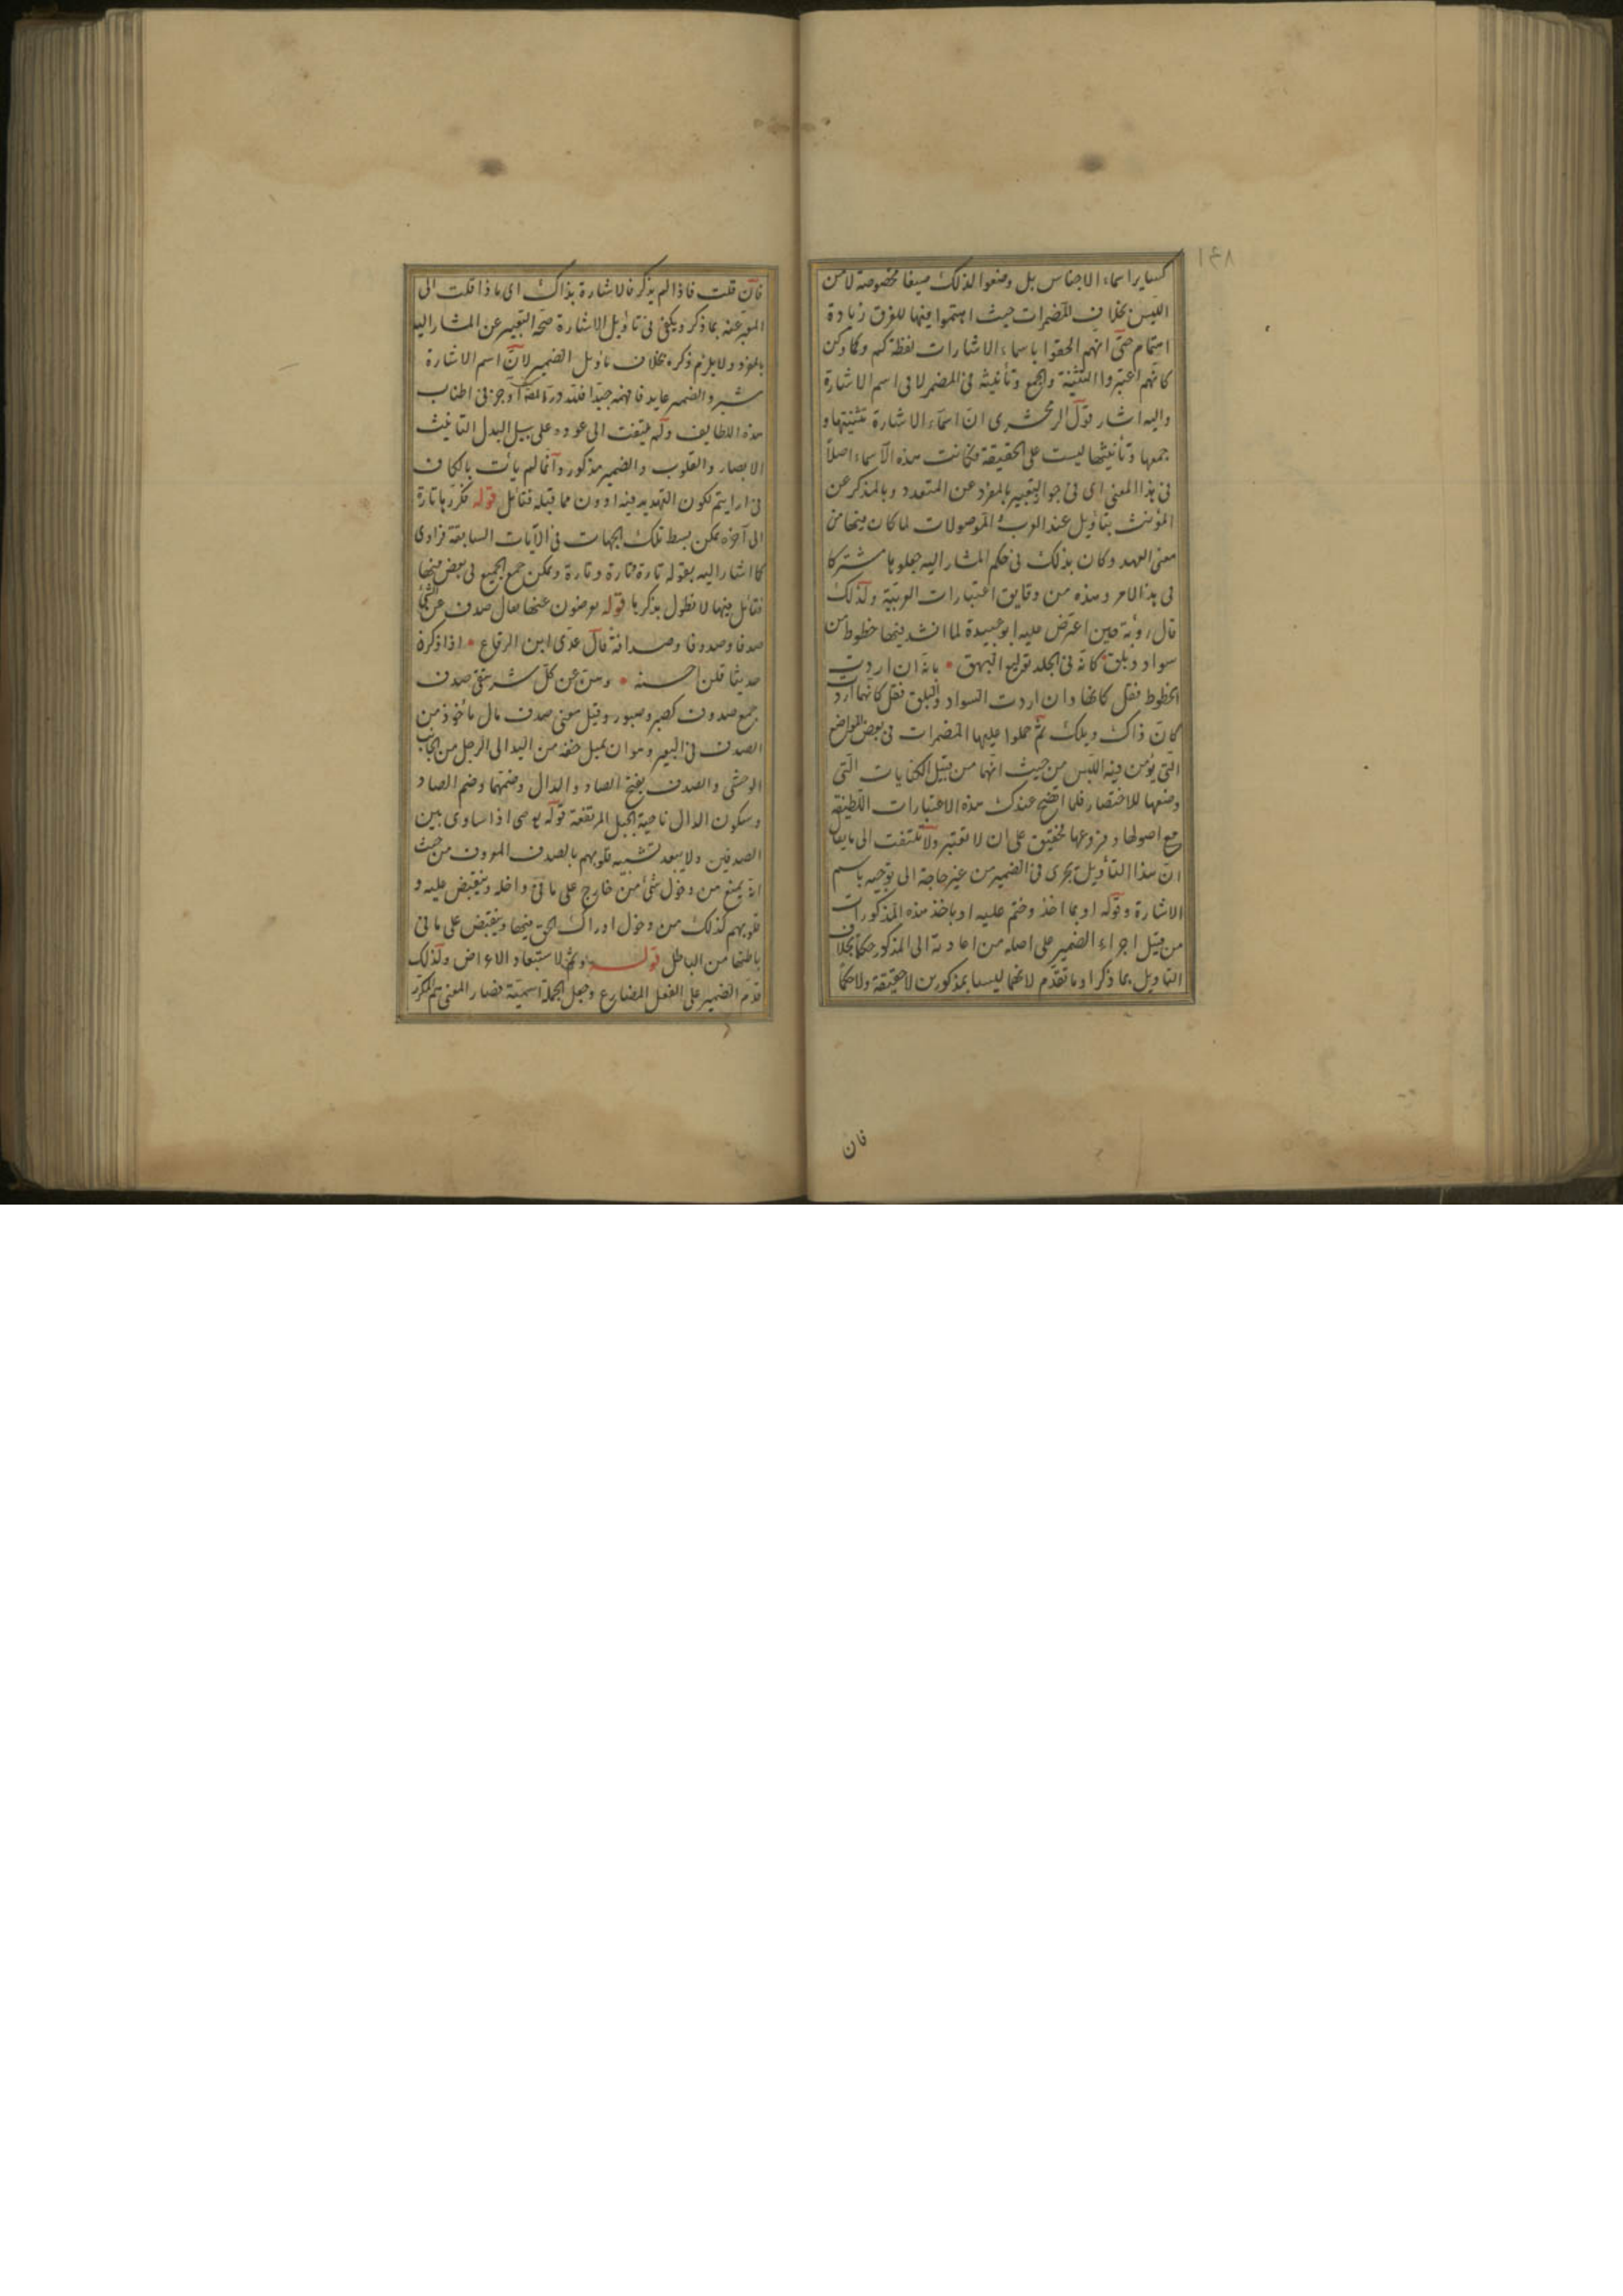 ١٤٨
كساير اسماء الاجناس بل وضعوا لذلك صيغا مخصوصة لا من
اللبس بخلاف المضمرات حيث اهتموا فيها للفرق زيادة
اهتمام حتى انهم الحقوا باسماء الاشارات لفظة كم وكما وكن
كانهم اعتبروا التثنية والجمع وتأنيثه في المضمر لا في اسم الاشارة
واليه اشار قول الزمخشرى ان اسماء الاشارة تثنيتها و
جمعها وتأنيثها ليست على الحقيقة فكانت هذه الاسماء اصلاً
في هذا المعنى اى في جواز التعبير بالمفرد عن المتعدد وبالمذكر عن
المؤنث بتأويل عند العرب والموصولات لما كان فيها من
معنى العهد وكان بذلك في حكم المشار اليه جعلوها مشتركا
في هذا الامر وهذه من دقايق اعتبارات العربية ولذلك
قال رؤبة حين اعترض عليه ابو عبيدة لما انشد فيها خطوط من
سواد وبلق كانه في الجلد توليع البهق • بانه ان اردت
الخطوط فقل كانها وان اردت السواد والبلق فقل كانهما اردت
كان ذاك ويلك ثم حملوا عليها المضمرات في بعض المواضع
التى يؤمن فيه اللبس من حيث انهما من قبيل الكنايات التى
وضعها للاختصار فلما اتضح عندك هذه الاعتبارات اللطيفة
مع اصولها وفروعها فحقيق على ان لا تعتبر ولا تلتفت الى ما يقال
ان هذا التأويل يجرى في الضمير من غير حاجة الى توجيه باسم
الاشارة وقوله او بما اخذ وختم عليه او باخذ هذه المذكورات
من قبيل اجراء الضمير على اصله من اعادته الى المذكور حكماً بخلاف
التاويل بما ذكر او ما تقدم لانهما ليسا بمذكورين لا حقيقة ولا حكماً
فان
فان قلت فاذا لم يذكر فالاشارة بذاك اى ماذا قلت الى
المعبر عنه بما ذكر ويكفى في تأويل الاشارة صحة التعبير عن المشار اليه
بالمفرد ولا يلزم ذكره بخلاف تأويل الضمير لان اسم الاشارة
يشير والضمير عايد فافهمه جيدا فلله دره اوجز في اطناب
هذه اللطايف ولم يلتفت الى عوده على سبيل البدل التأنيث
الابصار والقلوب والضمير مذكور وانما لم يأت بالكاف
في ارايتم لكون التهديد فيه ادون مما قبله فتأمل قوله فكررها تارة
الى آخره يمكن بسط تلك الجهات في الآيات السابقة فرادى
كما اشار اليه بقوله تارة وتارة وتارة ويمكن جمع الجميع في بعض منها
فتأمل فيها لا نطول بذكرها قوله يعرضون عنها يقال صدف عن الشئ
صدفا وصدوفا وصدافة قال عدى ابن الرقاع • اذا ذكرن
حديثا قلن احسنه • وهن عن كل شر يتقى صدف
جمع صدوف كصبر وصبور وقيل معنى صدف مال مأخوذ من
الصدف في البعير وهو ان يميل خفه من اليد الى الرجل من الجانب
الوحشى والصدف بفتح الصاد والدال وضمهما وضم الصاد
وسكون الدال ناحية الجبل المرتفعة قوله يوحى اذا ساوى بين
الصدفين ولا يبعد تشبيه قلوبهم بالصدف المعروف من حيث
انه يمنع من دخول شئ من خارج على ما في داخله وينقبض عليه و
قلوبهم كذلك من دخول ادراك الحق فيها وينقبض على ما في
باطنها من الباطل قوله وثم لاستبعاد الاعراض ولذلك
قدم الضمير على الفعل المضارع وجعل الجملة اسمية فصار المعنى ثم لمكرر